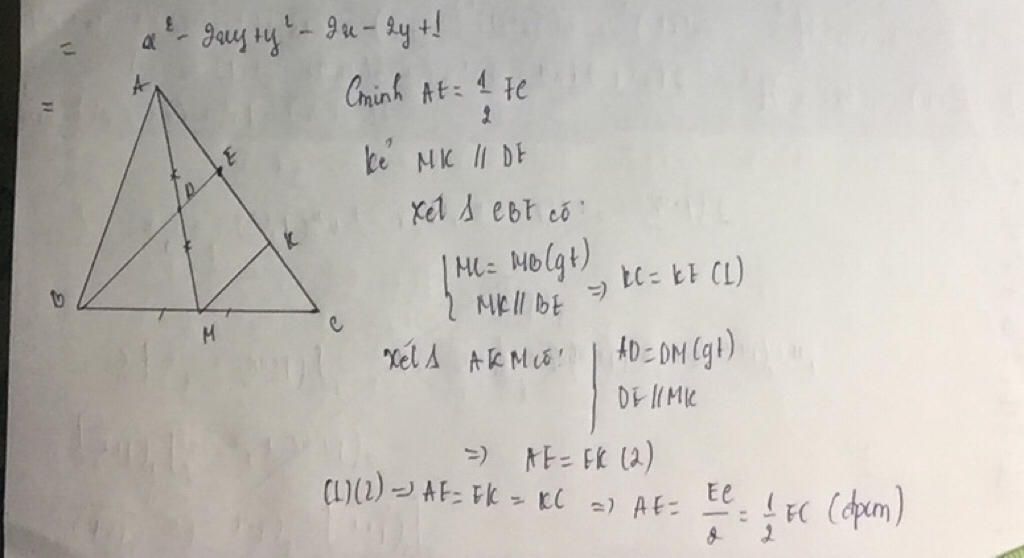 = x² - 2xy + y² - 2x - 2y + 1
=
A
E
D
K
B
M
C
Cminh AE = 1/2 EC
kẻ MK // DE
Xét Δ CBE có:
{ MC = MB (gt)
MK // BE => KC = KE (1)
Xét Δ AKM có: | AD = DM (gt)
DE // MK
=> AE = EK (2)
(1)(2) => AE = EK = KC => AE = EC/2 = 1/2 EC (đpcm)